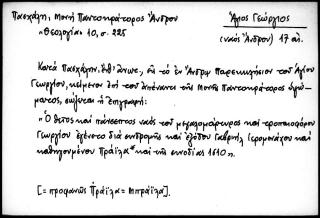 Πασχάλη, Μονή Παντοκράτορος Ἄνδρου
«Θεολογία» 10, σ. 225
Ἅγιος Γεώργιος
(ναὸς Ἄνδρου) 17 αἰ.
Κατὰ Πασχάλην, ἔνθ' ἀνωτ., εἰς τὸ ἐν Ἄνδρῳ Παρεκκλήσιον τοῦ Ἁγίου
Γεωργίου, κείμενον ἐπὶ τοῦ ἀπέναντι τῆς Μονῆς Παντοκράτορος ὑψώ-
ματος, σώζεται ἡ ἐπιγραφή:
«Ὁ θεῖος καὶ πάνσεπτος ναὸς τοῦ μεγαλομάρτυρος καὶ τροπαιοφόρου
Γεωργίου ἐγένετο διὰ συνδρομῆς καὶ ἐξόδου Γαβριὴλ ἱερομονάχου καὶ
καθηγουμένου Πράϊλα* καὶ τῆς συνοδίας 1610».
[= προφανῶς Πράϊλα = Μπράϊλα].